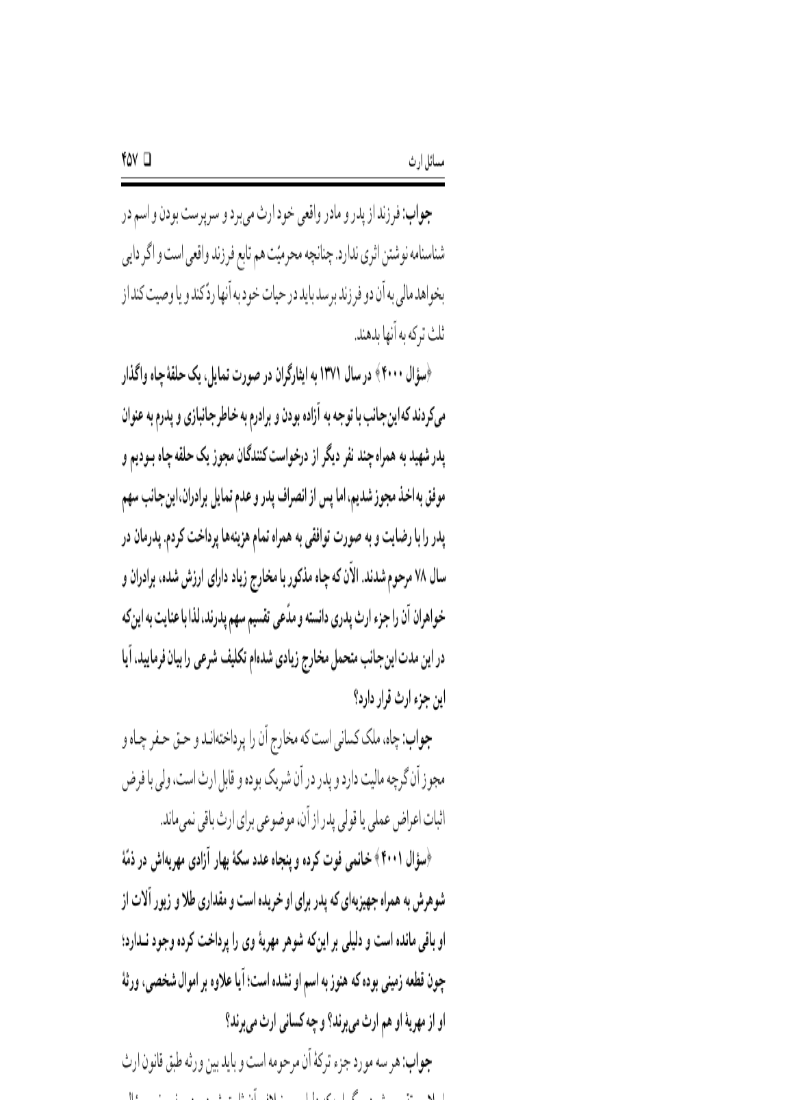 مسائل ارث □ ۴۵۷
جواب: فرزند از پدر و مادر واقعی خود ارث می‌برد و سرپرست بودن و اسم در
شناسنامه نوشتن اثری ندارد. چنانچه محرمیّت هم تابع فرزند واقعی است و اگر دایی
بخواهد مالی به آن دو فرزند برسد باید در حیات خود به آنها ردّ کند و یا وصیت کند از
ثلث ترکه به آنها بدهند.
﴿سؤال ۴۰۰۰﴾ در سال ۱۳۷۱ به ایثارگران در صورت تمایل، یک حلقهٔ چاه واگذار
می‌کردند که این‌جانب با توجه به آزاده بودن و برادرم به خاطر جانبازی و پدرم به عنوان
پدر شهید به همراه چند نفر دیگر از درخواست‌کنندگان مجوز یک حلقه چاه بـودیم و
موفق به اخذ مجوز شدیم، اما پس از انصراف پدر و عدم تمایل برادران، این‌جانب سهم
پدر را با رضایت و به صورت توافقی به همراه تمام هزینه‌ها پرداخت کردم. پدرمان در
سال ۷۸ مرحوم شدند. الآن که چاه مذکور با مخارج زیاد دارای ارزش شده، برادران و
خواهران آن را جزء ارث پدری دانسته و مدّعی تقسیم سهم پدرند، لذا با عنایت به این‌که
در این مدت این‌جانب متحمل مخارج زیادی شده‌ام تکلیف شرعی را بیان فرمایید، آیا
این جزء ارث قرار دارد؟
جواب: چاه، ملک کسانی است که مخارج آن را پرداخته‌انـد و حـق حـفر چـاه و
مجوز آن گرچه مالیت دارد و پدر در آن شریک بوده و قابل ارث است، ولی با فرض
اثبات اعراض عملی یا قولی پدر از آن، موضوعی برای ارث باقی نمی‌ماند.
﴿سؤال ۴۰۰۱﴾ خانمی فوت کرده و پنجاه عدد سکهٔ بهار آزادی مهریه‌اش در ذمّهٔ
شوهرش به همراه جهیزیه‌ای که پدر برای او خریده است و مقداری طلا و زیور آلات از
او باقی مانده است و دلیلی بر این‌که شوهر مهریهٔ وی را پرداخت کرده وجود نـدارد؛
چون قطعه زمینی بوده که هنوز به اسم او نشده است؛ آیا علاوه بر اموال شخصی، ورثهٔ
او از مهریهٔ او هم ارث می‌برند؟ و چه کسانی ارث می‌برند؟
جواب: هر سه مورد جزء ترکهٔ آن مرحومه است و باید بین ورثه طبق قانون ارث